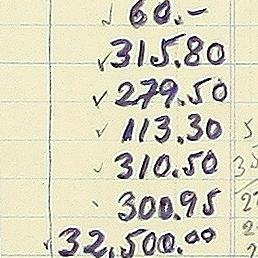 ✓ 60.-
✓ 315.80
✓ 279.50
✓ 113.30 5
✓ 310.50 35
300.95
✓ 32,500.00